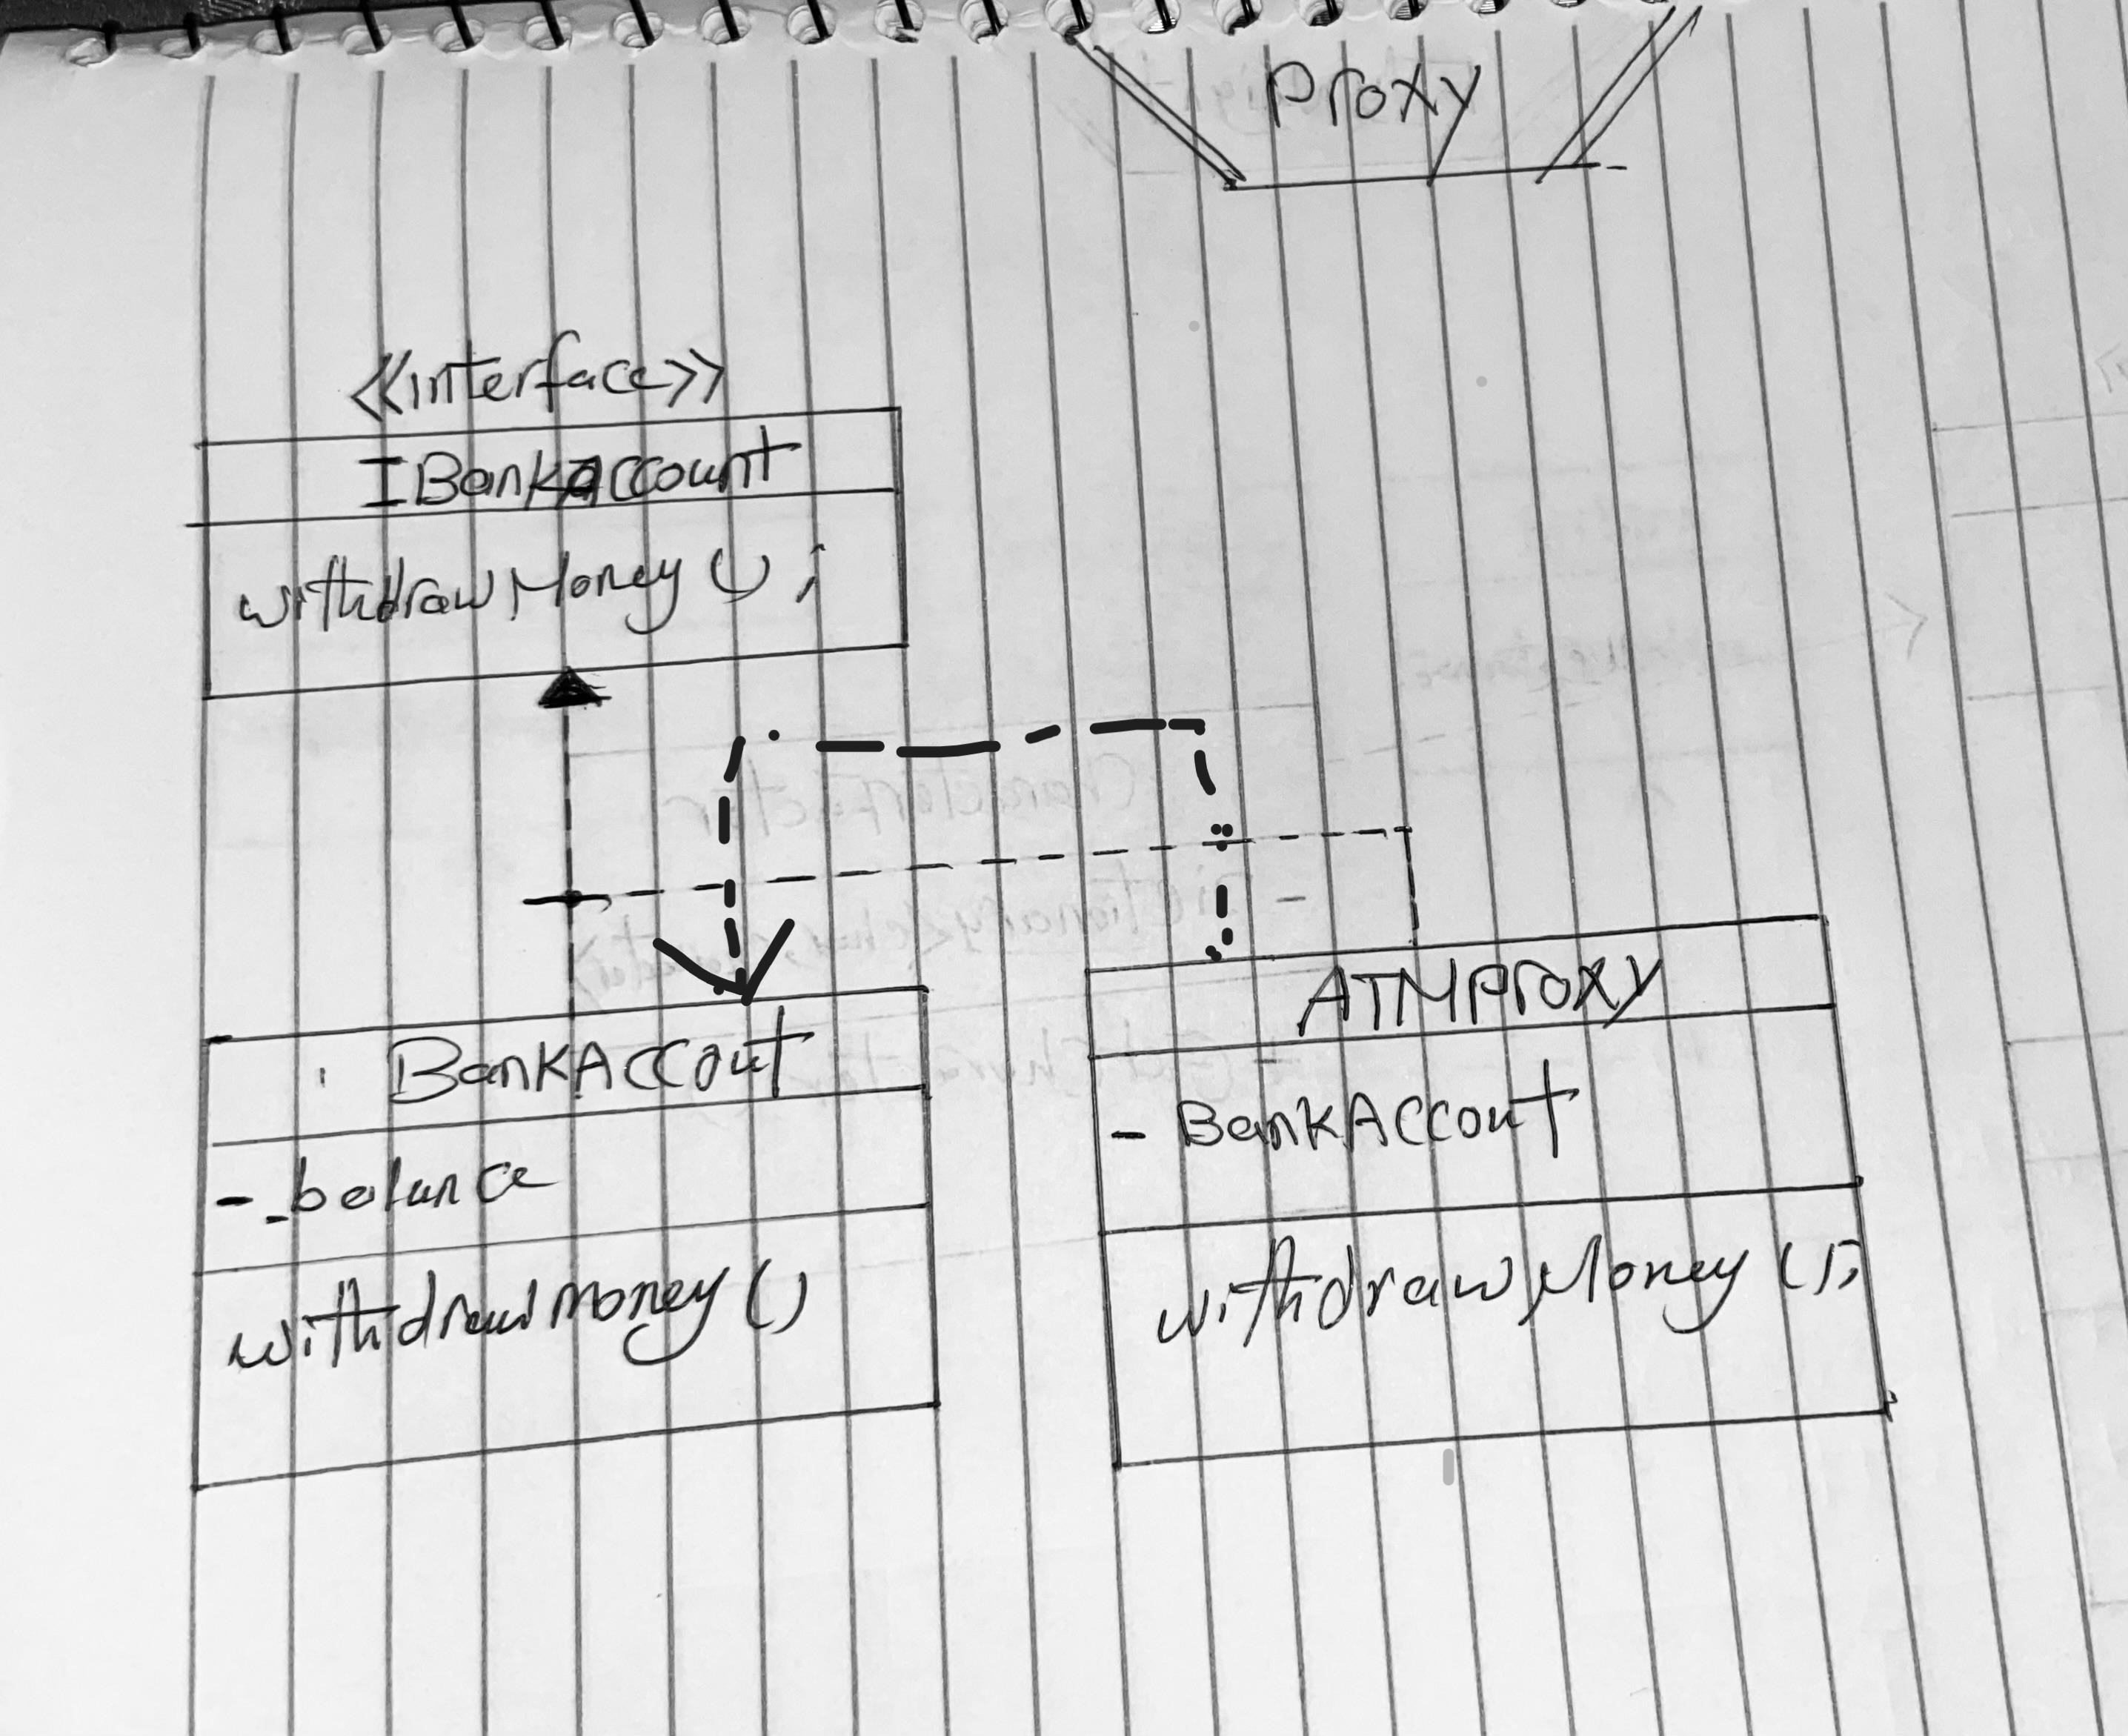 Proxy
<<interface>>
IBankAccount
withdrawMoney();
BankAccout
- _balance
withdrawmoney()
ATMProxy
- BankAccout
withdrawMoney();